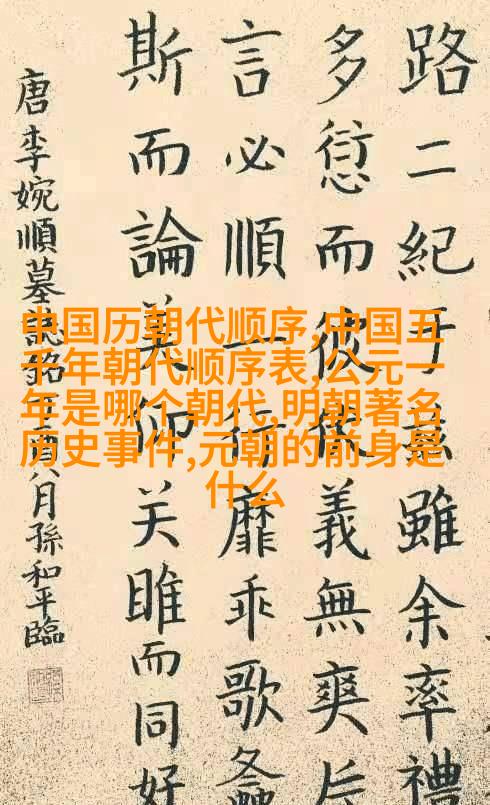 路二紀于茲雖余率禮
多愆而彼儀義無爽斤
言必順一行靡乖歌
斯而論美仰关雎而同好
唐李婉順墓誌銘丁酉八月孫和平臨
中国历朝代顺序,中国五
千年朝代顺序表,公元一
年是哪个朝代,明朝著名
历史事件,元朝的前身是
什么